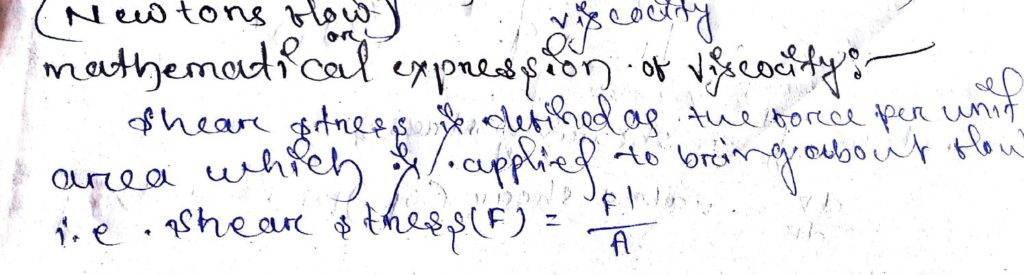 (Newtons flow) viscocity
or
mathematical expression of viscocity:-
Shear stress is defined as the force per unit
area which is applied to bring about flow
i.e. Shear stress (F) = F'
A